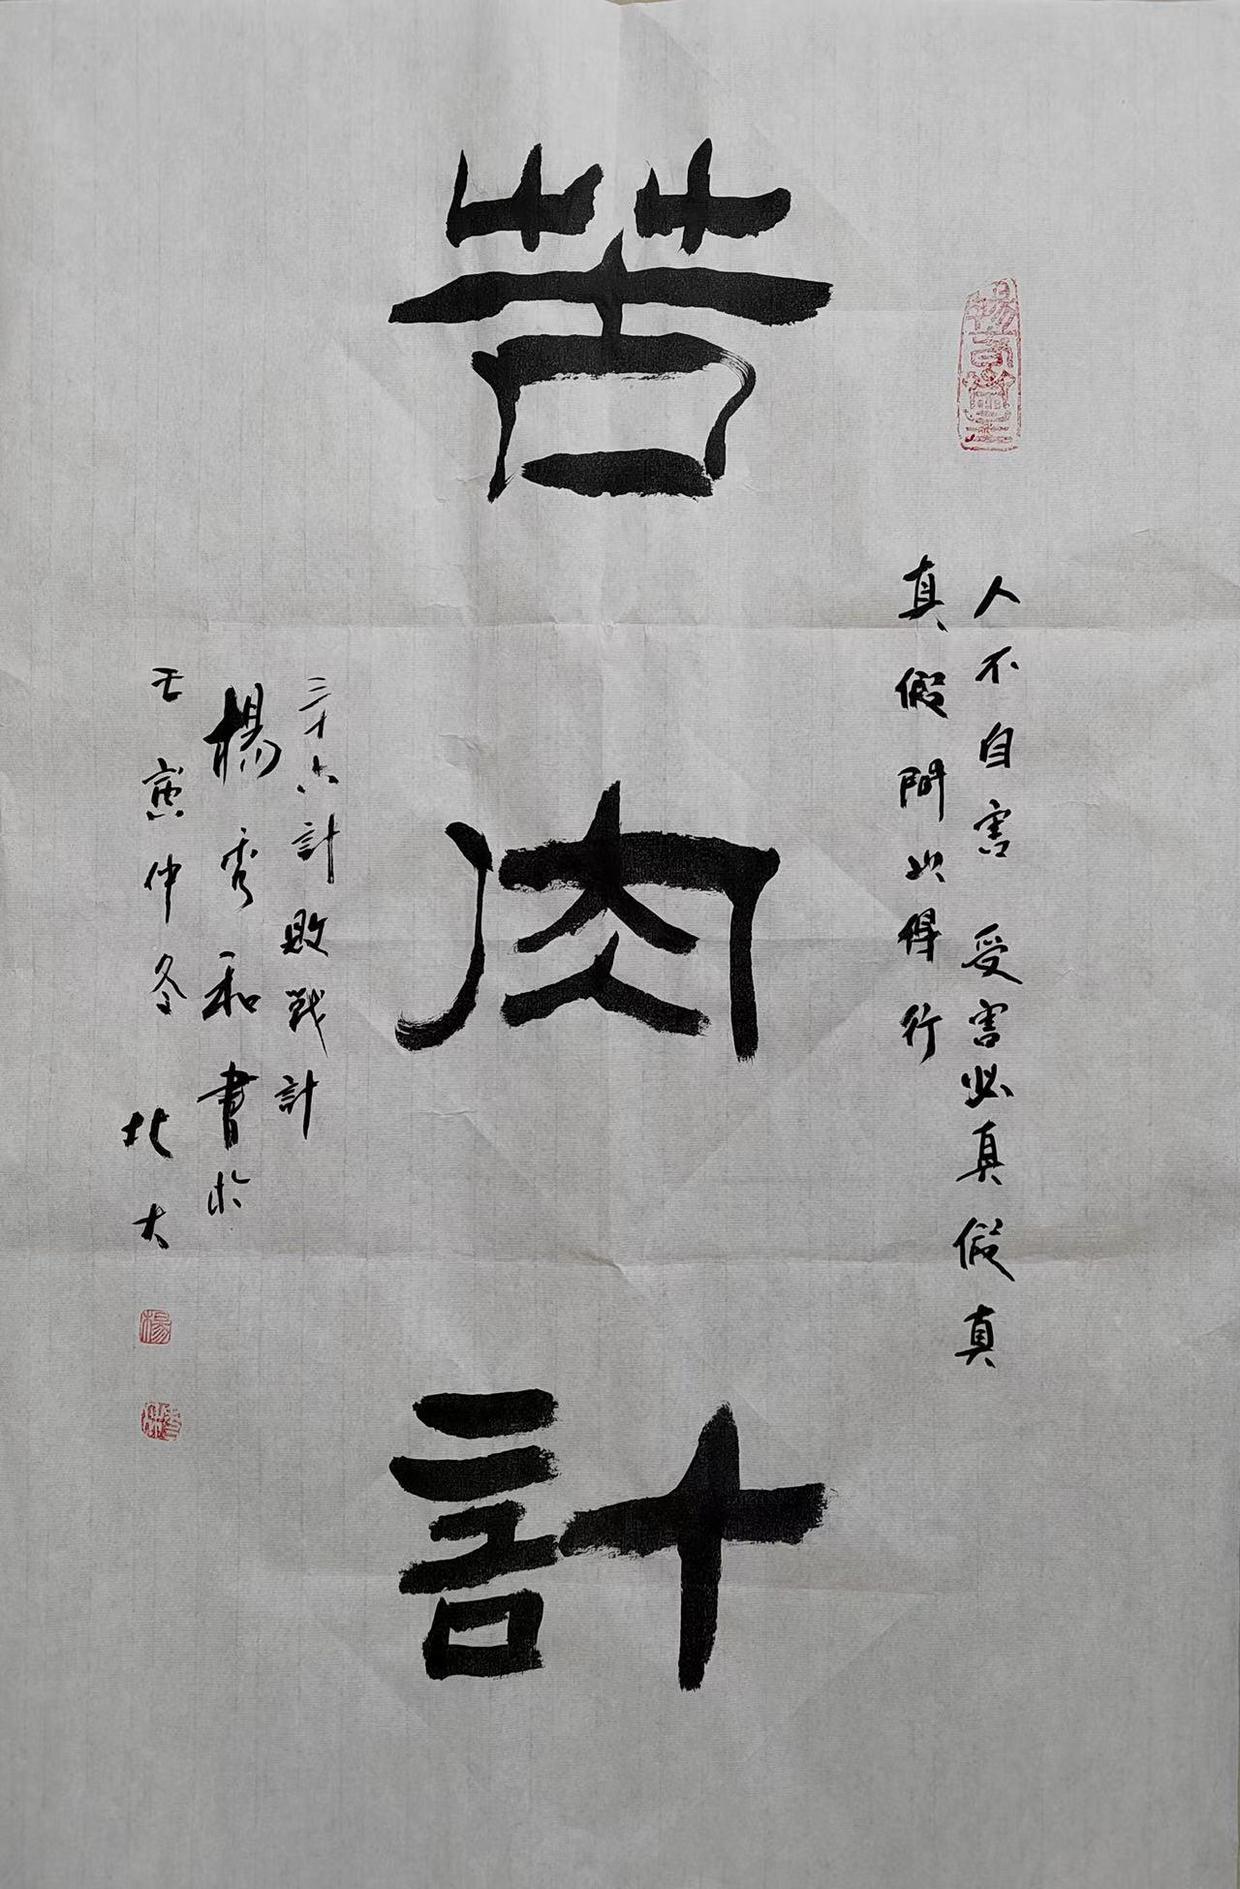 人不自害受害必真假真
真假間以得行
苦肉計
三十六計敗戰計
楊秀和書於
壬寅仲冬北大
楊